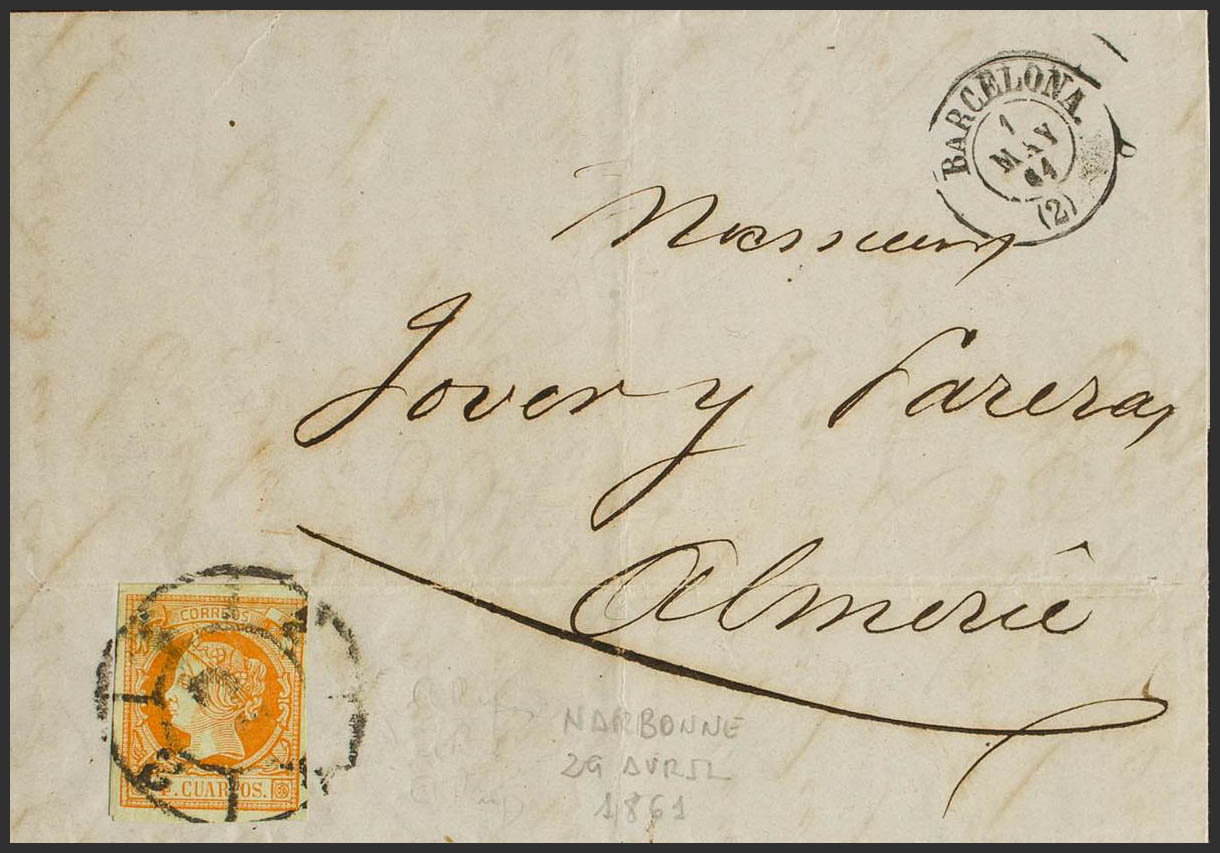 BARCELONA.
1
MAY
61
(2)
Messieurs
Jover y Parera
Almerie
CORREOS
CUARTOS.
NARBONNE
29 AVRIL
1861